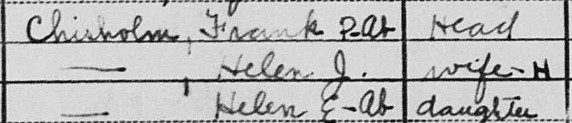 Chisholm, Frank P-Ab Head
— Helen J. wife-H
— Helen E-Ab daughter